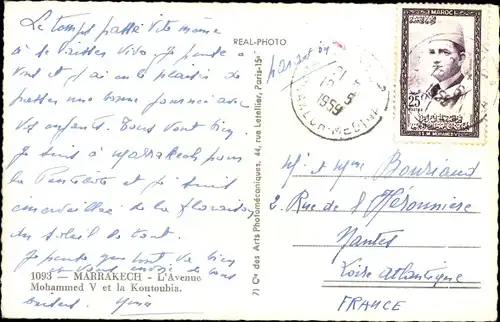 Le temps passe vite même
à se laisser vivre je pense à
vous et j'ai eu le plaisir de
passer une bonne journée avec
vos enfants. Tous vont bien
Je suis à Marrakech pour
la Pentecôte et je suis
émerveillée de la floraison
du soleil de tout.
Je pense que tout va bien
et vous envoie de bons
1093 — MARRAKECH - L'Avenue
Mohammed V et la Koutoubia.
REAL-PHOTO
par avion
Cie des Arts Photomécaniques, 44, rue Letellier, Paris-15e
MAROC
25
S.M. MOHAMED V
1959
MARRAKECH-MEDINA
Mr et Mme Bouriaud
2. Rue de l'Héronnière
Nantes
Loire Atlantique
FRANCE